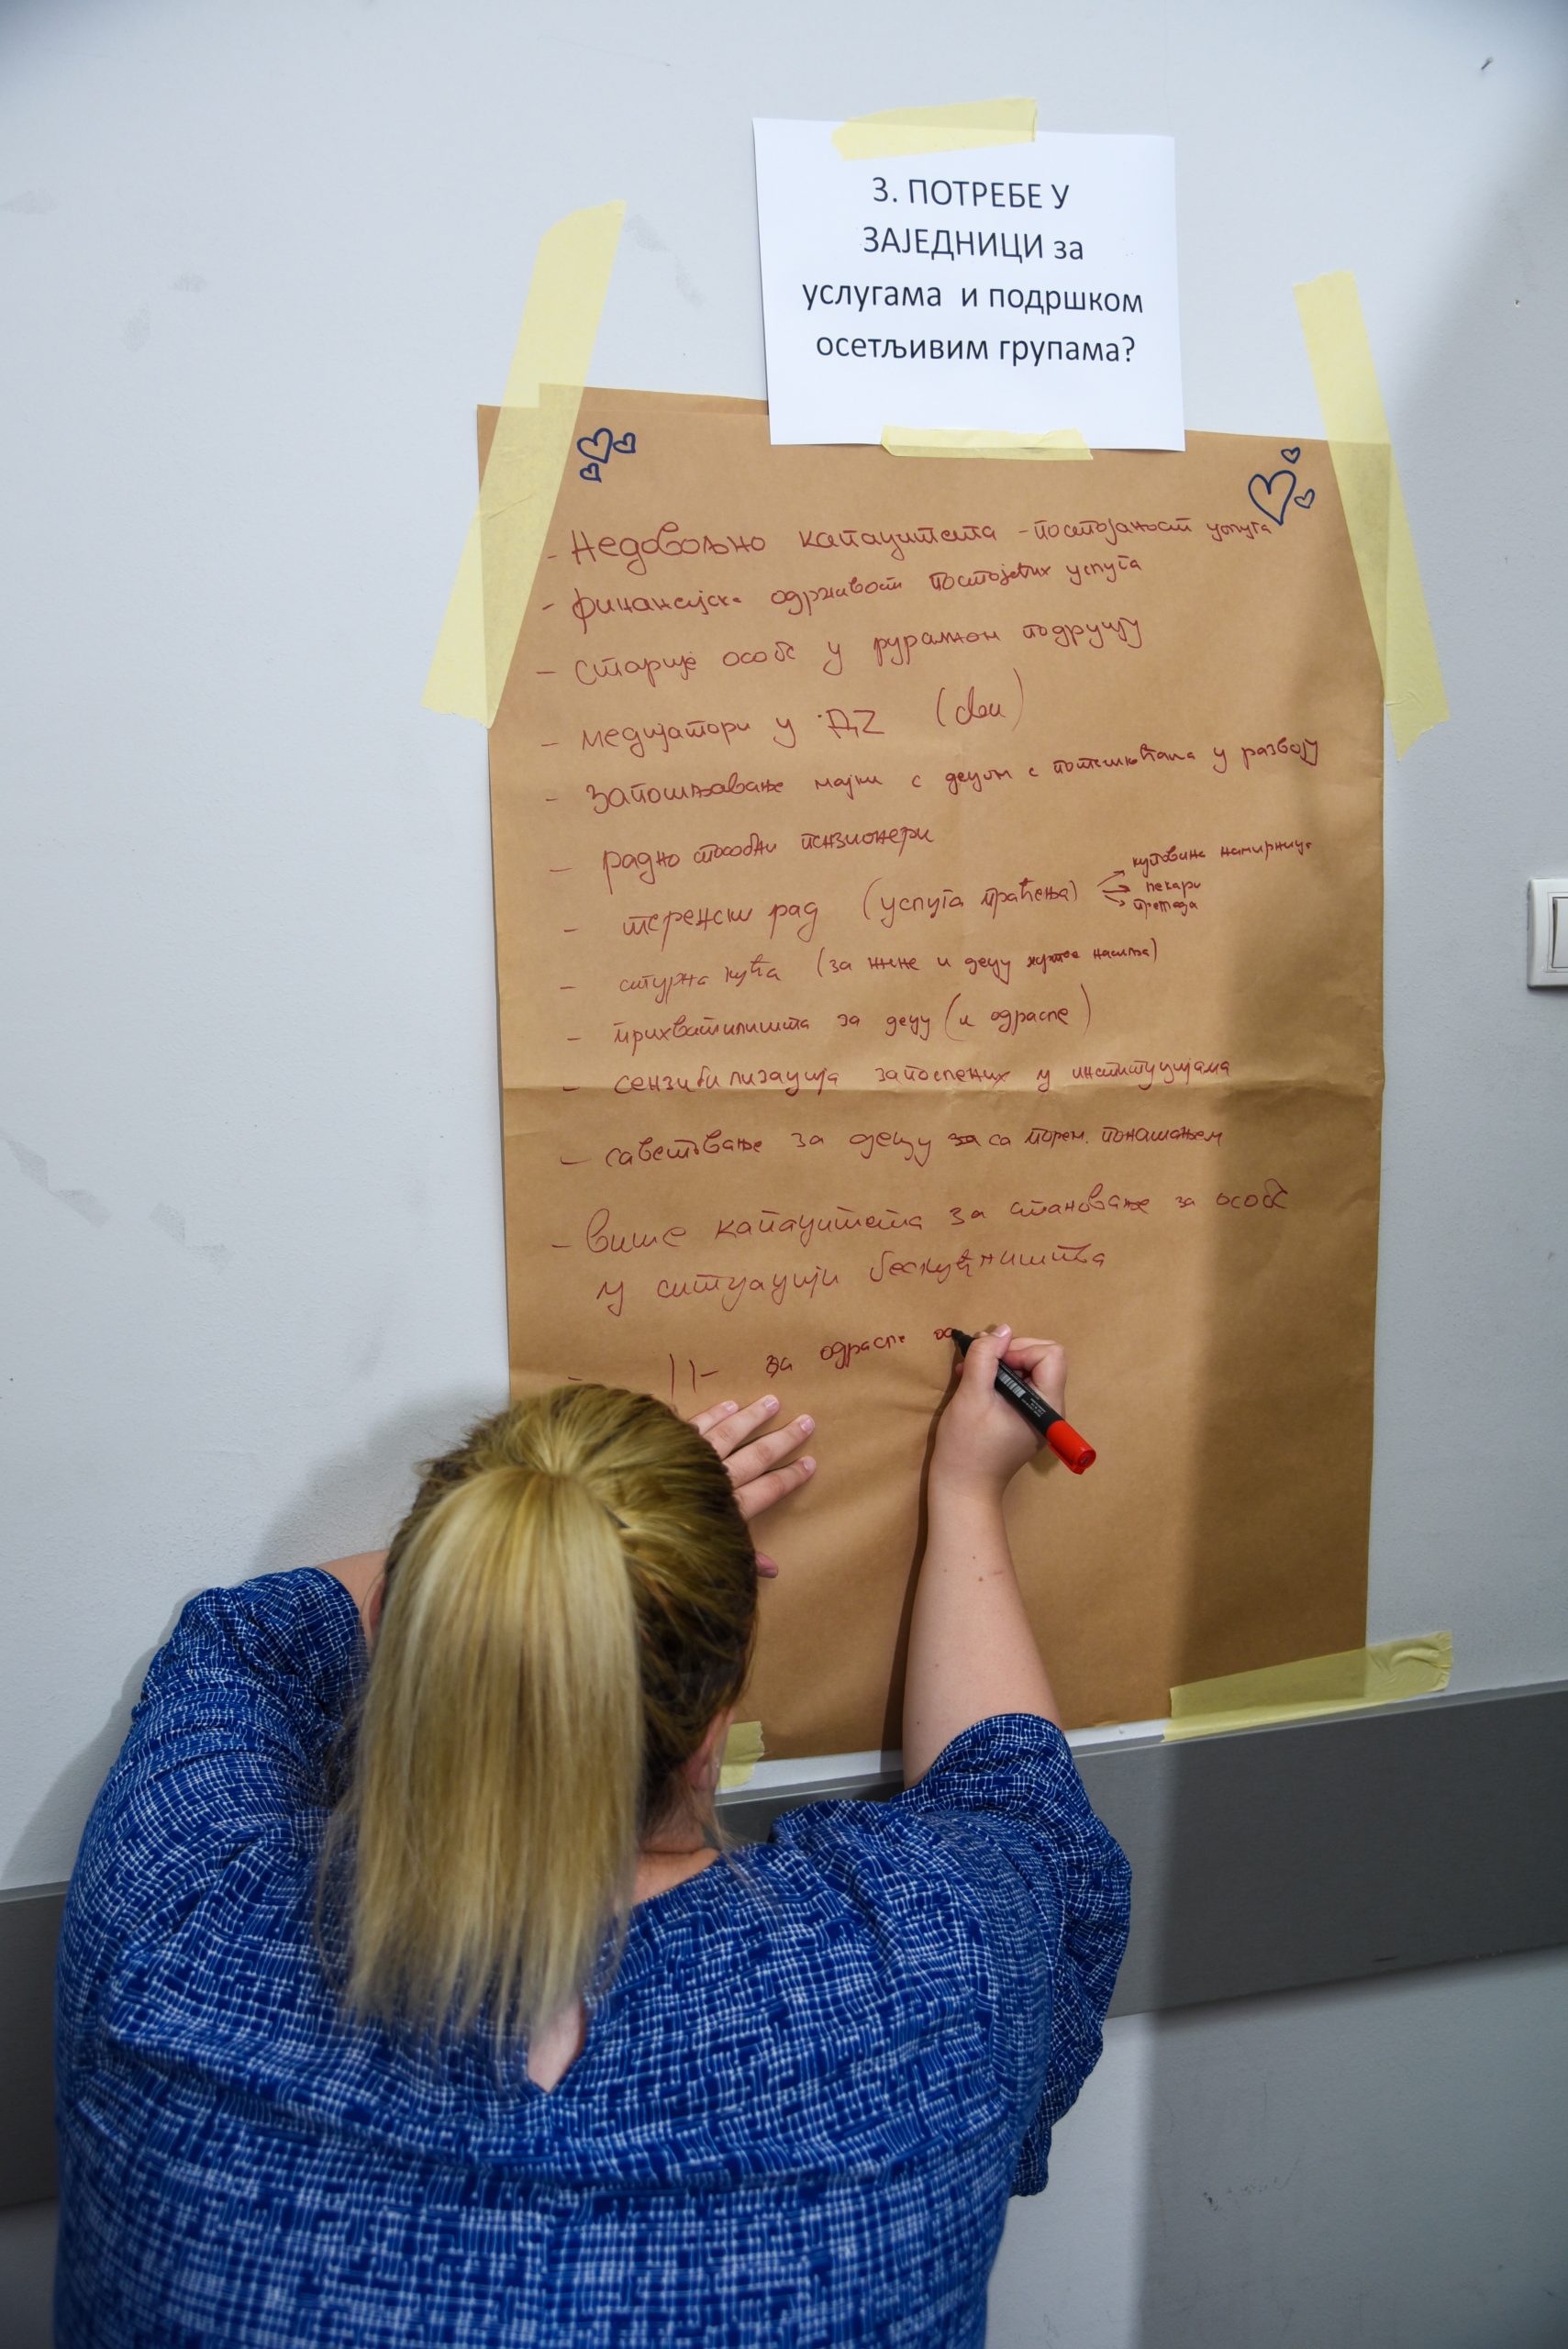 3. ПОТРЕБЕ У
ЗАЈЕДНИЦИ за
услугама и подршком
осетљивим групама?
- Недовољно капацитета - постојаност услуга
- финансијска одрживост постојећих услуга
- старије особе у руралном подручју
- медијатори у ДZ (сви)
- запошљавање мајки с децом с потешкоћама у развоју
- радно способни пензионери
- теренски рад (услуга праћења)
куповина намирница
лекари
- сигурна кућа (за жене и децу жртве насиља)
- прихватилишта за децу (и одрасле)
- сензибилизација запослених у институцијама
- саветовање за децу са порем. понашањем
- више капацитета за становање за особе
у ситуацији бескућништва
- -||- за одрасле ос